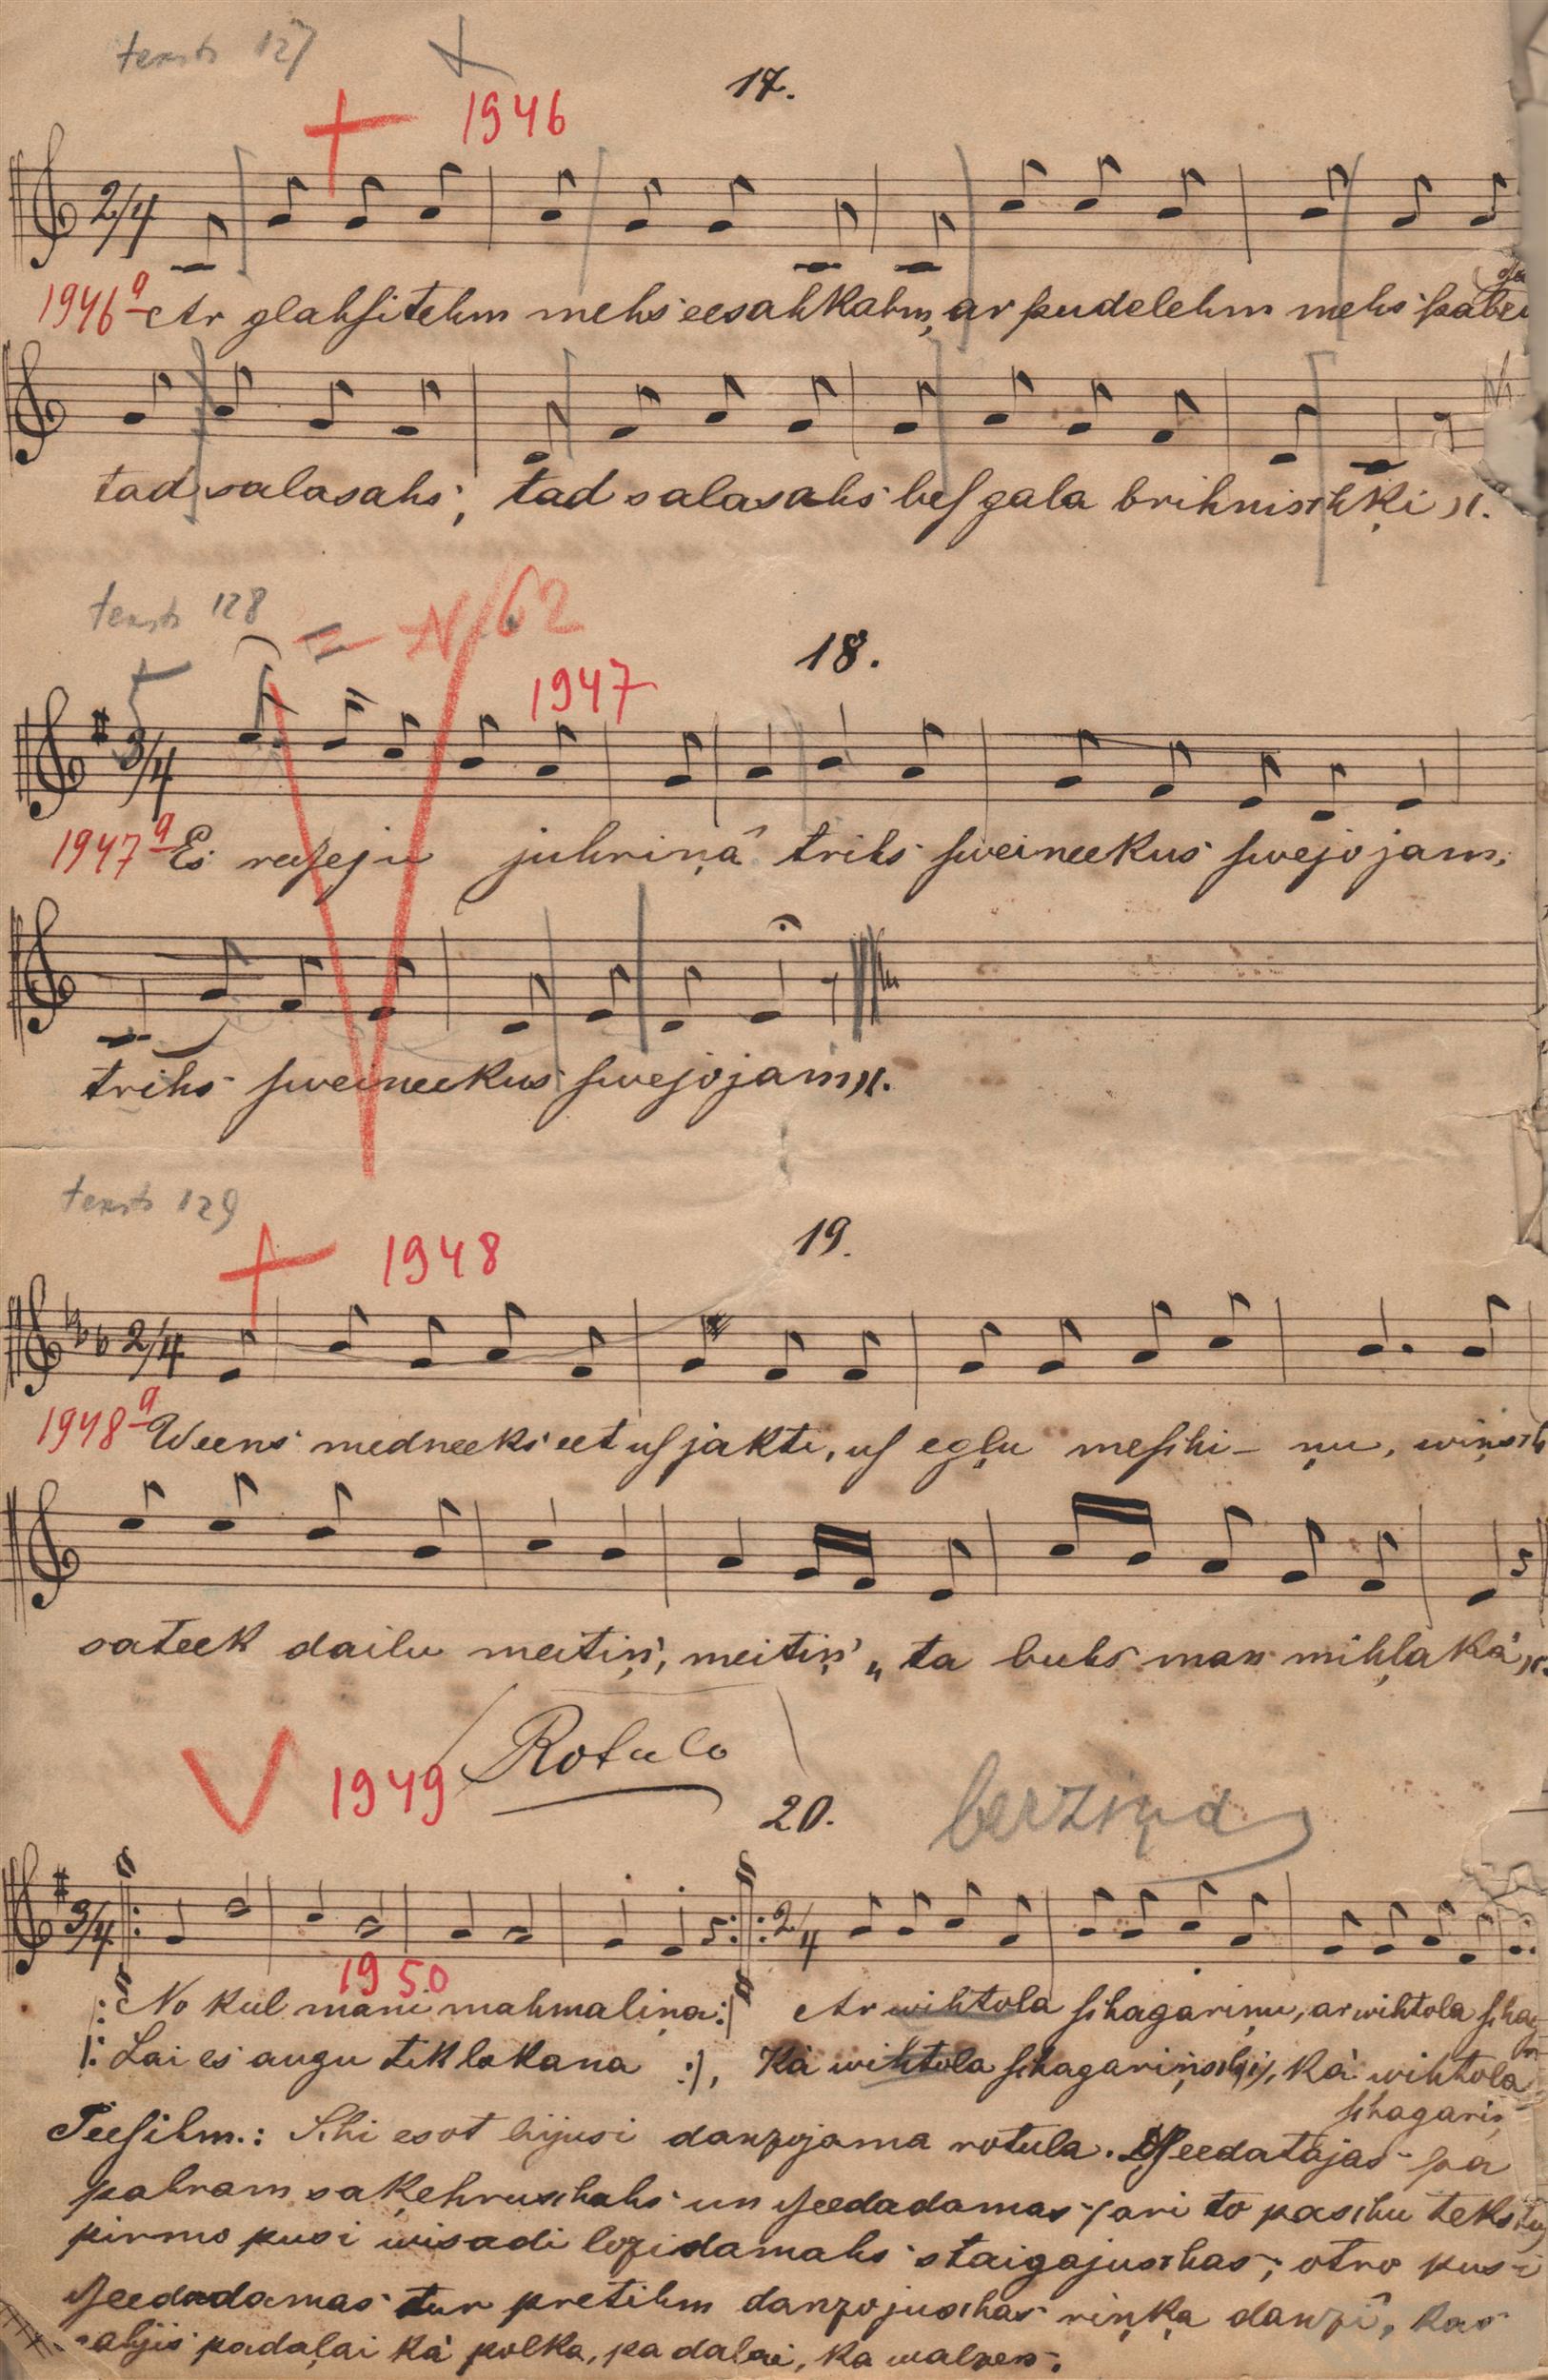 teksts 127
17.
1946
2/4
1946a Ar glahsitehm mehs eesahkahm, ar pudelehm mehs
tad salasahs, tad salasahs bes gala brihnischķi ).
teksts 128
= N 62
18.
1947
3/4
1947a Es juhriņâ trihs sweineekus swejojam,
trihs sweineekus swejojam ).
teksts 129
19.
1948
2/4
1948a Weens medneeks eet us jakti, us egļu meschi- ņu, wiņsch
sateek dailu meitiņ', meitiņ' „ta buhs man mihļakà".
Rotala
1949
20.
berziņa
3/4 2/4
1950
|: No kul mani mahmaliņa :| Ar wihtola schagariņu, ar wihtola schag-
|: Lai es augu tik lokana :|, Kà wihtola schagariņsch, kà wihtola
schagariņ
Peesihm.: Schi esot bijusi danzojama rotula. Dseedatajas pa
pahram saķehruschahs un dseedadamas (ari to paschu tekstu)
pirmo pusi wisadi lozidamahs staigajuschas; otro pusi
dseedadamas tur pretihm danzojuschas riņķa danzî, kas
padaļai kà polka, pa dalai, ka walzers.